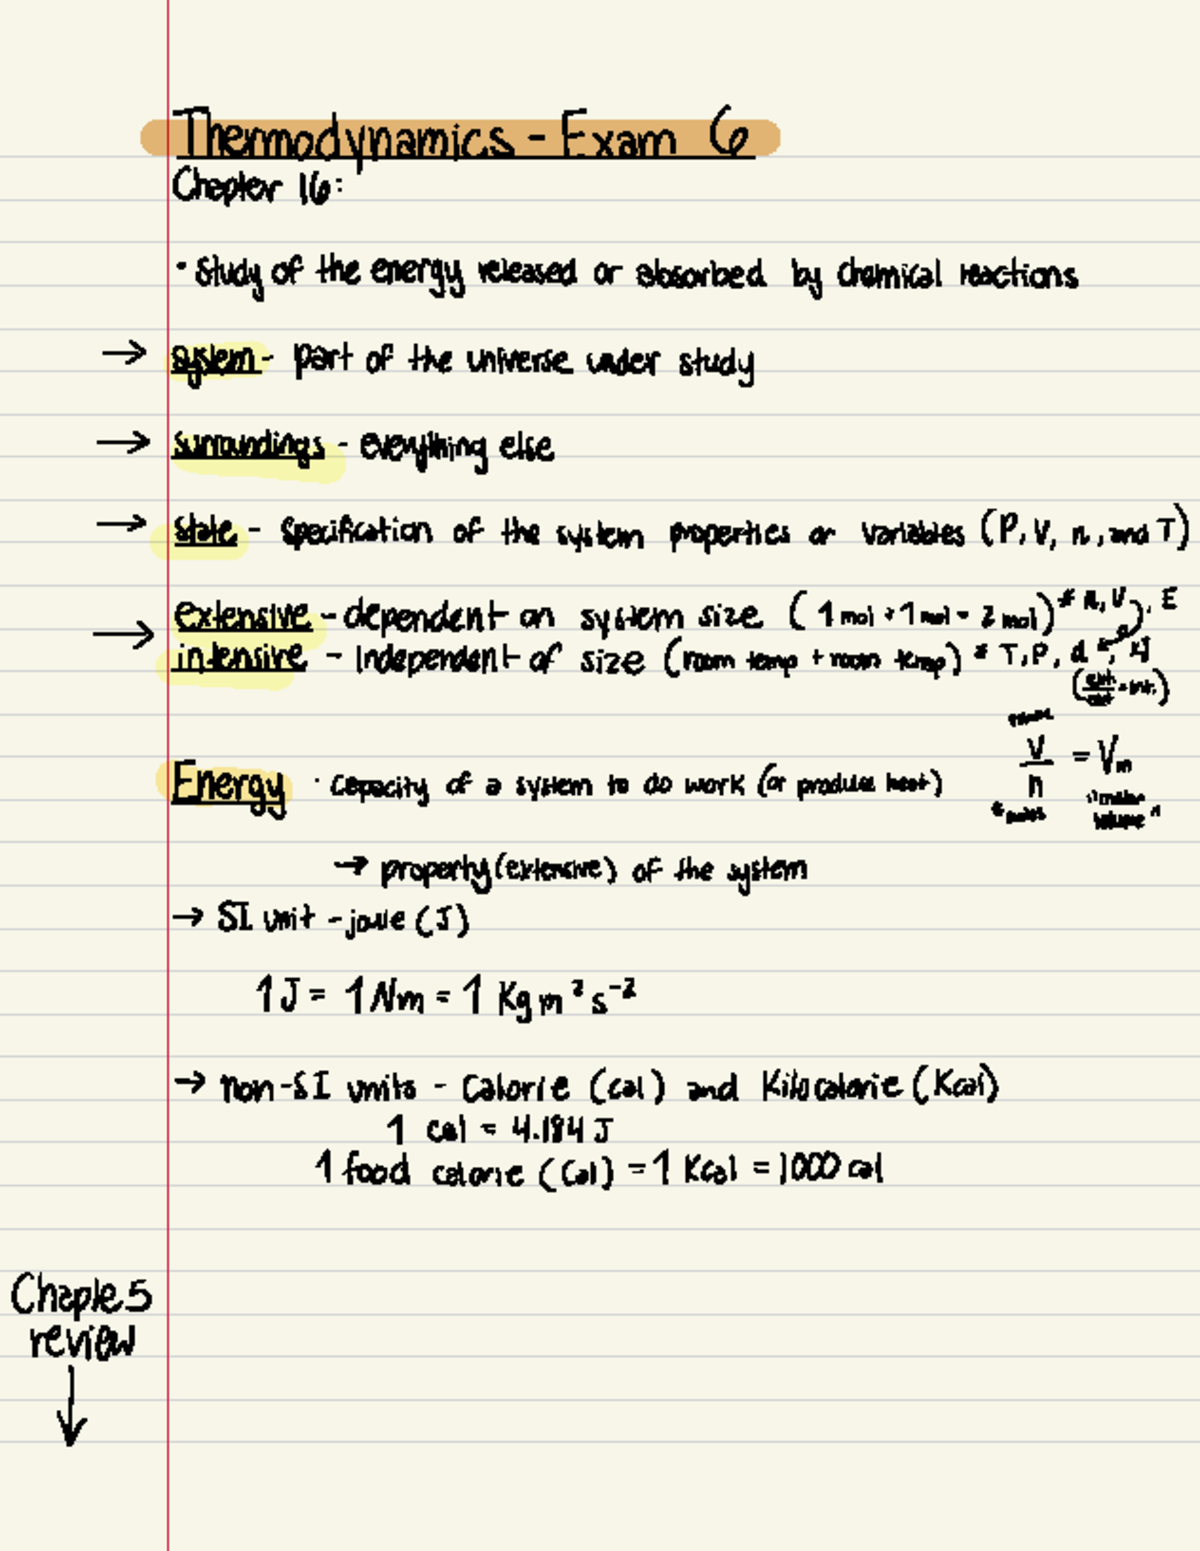 Thermodynamics - Exam 6
Chapter 16:
· Study of the energy released or absorbed by chemical reactions
→ system - part of the universe under study
→ surroundings - everything else
→ state - specification of the system properties or variables (P, V, n, and T)
→ extensive - dependent on system size (1 mol + 1 mol = 2 mol) * n, V, E
intensive - Independent of size (room temp + room temp) * T, P, d
(ext./ext. = int.)
V/n = Vm
"molar volume"
Energy · capacity of a system to do work (or produce heat)
→ property (extensive) of the system
→ SI unit - joule (J)
1 J = 1 Nm = 1 Kg m² s⁻²
→ non-SI units - Calorie (cal) and Kilocalorie (Kcal)
1 cal = 4.184 J
1 food calorie (Cal) = 1 Kcal = 1000 cal
Chapte 5
review
↓